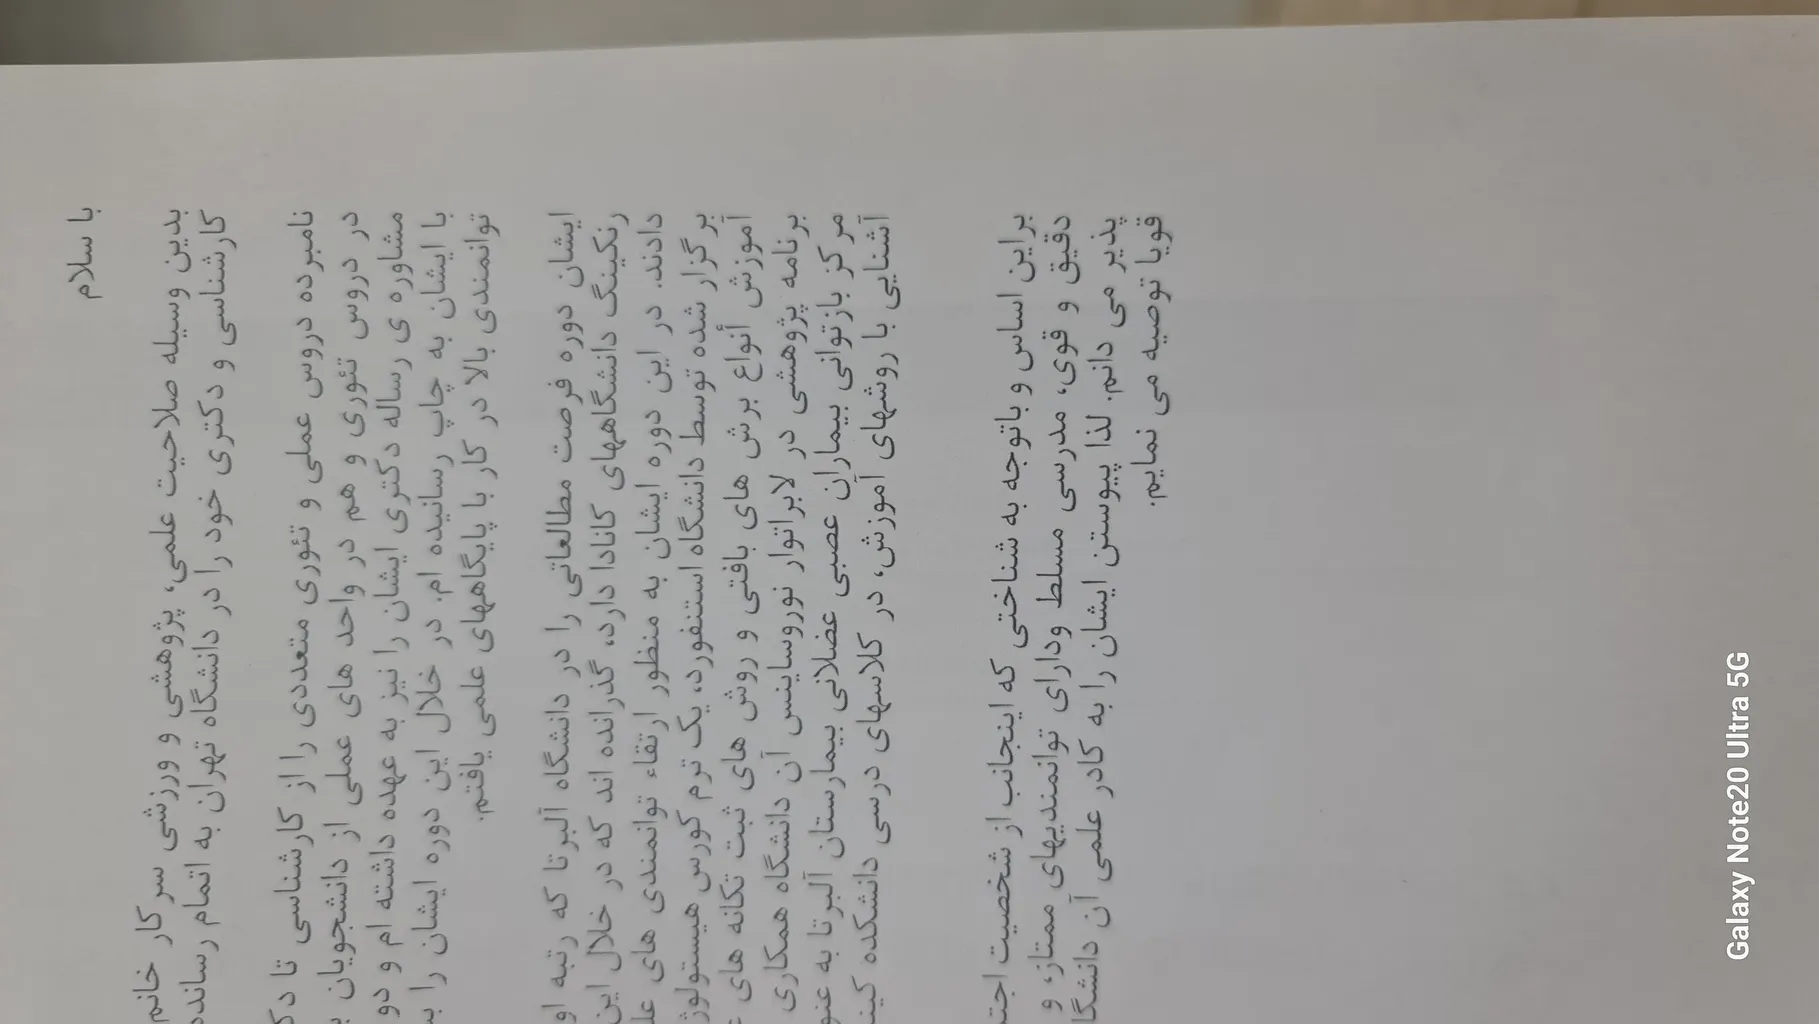 با سلام
بدین وسیله صلاحیت علمی، پژوهشی و ورزشی سرکار خانم
کارشناسی و دکتری خود را در دانشگاه تهران به اتمام رسانده
نامبرده دروس عملی و تئوری متعددی را از کارشناسی تا
در دروس تئوری و هم در واحد های عملی از دانشجویان
مشاوره ی رساله دکتری ایشان را نیز به عهده داشته ام و دو
با ایشان به چاپ رسانیده ام. در خلال این دوره ایشان را
توانمندی بالا در کار با پایگاههای علمی یافتم.
ایشان دوره فرصت مطالعاتی را در دانشگاه آلبرتا که رتبه
رنکینگ دانشگاههای کانادا دارد، گذرانده اند که در خلال این
دادند. در این دوره ایشان به منظور ارتقاء توانمندی های
برگزار شده توسط دانشگاه استنفورد، یک ترم کورس
آموزش أنواع برش های بافتی و روش های ثبت تکانه های
برنامه پژوهشی در لابراتوار نوروساینس آن دانشگاه همکاری
مرکز بازتوانی بیماران عصبی عضلانی بیمارستان آلبرتا به
آشنایی با روشهای آموزش، در کلاسهای درسی دانشکده
براین اساس و باتوجه به شناختی که اینجانب از شخصیت
دقیق و قوی، مدرسی مسلط ودارای توانمندیهای ممتاز، و
پذیر می دانم. لذا پیوستن ایشان را به کادر علمی آن
قویا توصیه می نمایم.
Galaxy Note20 Ultra 5G